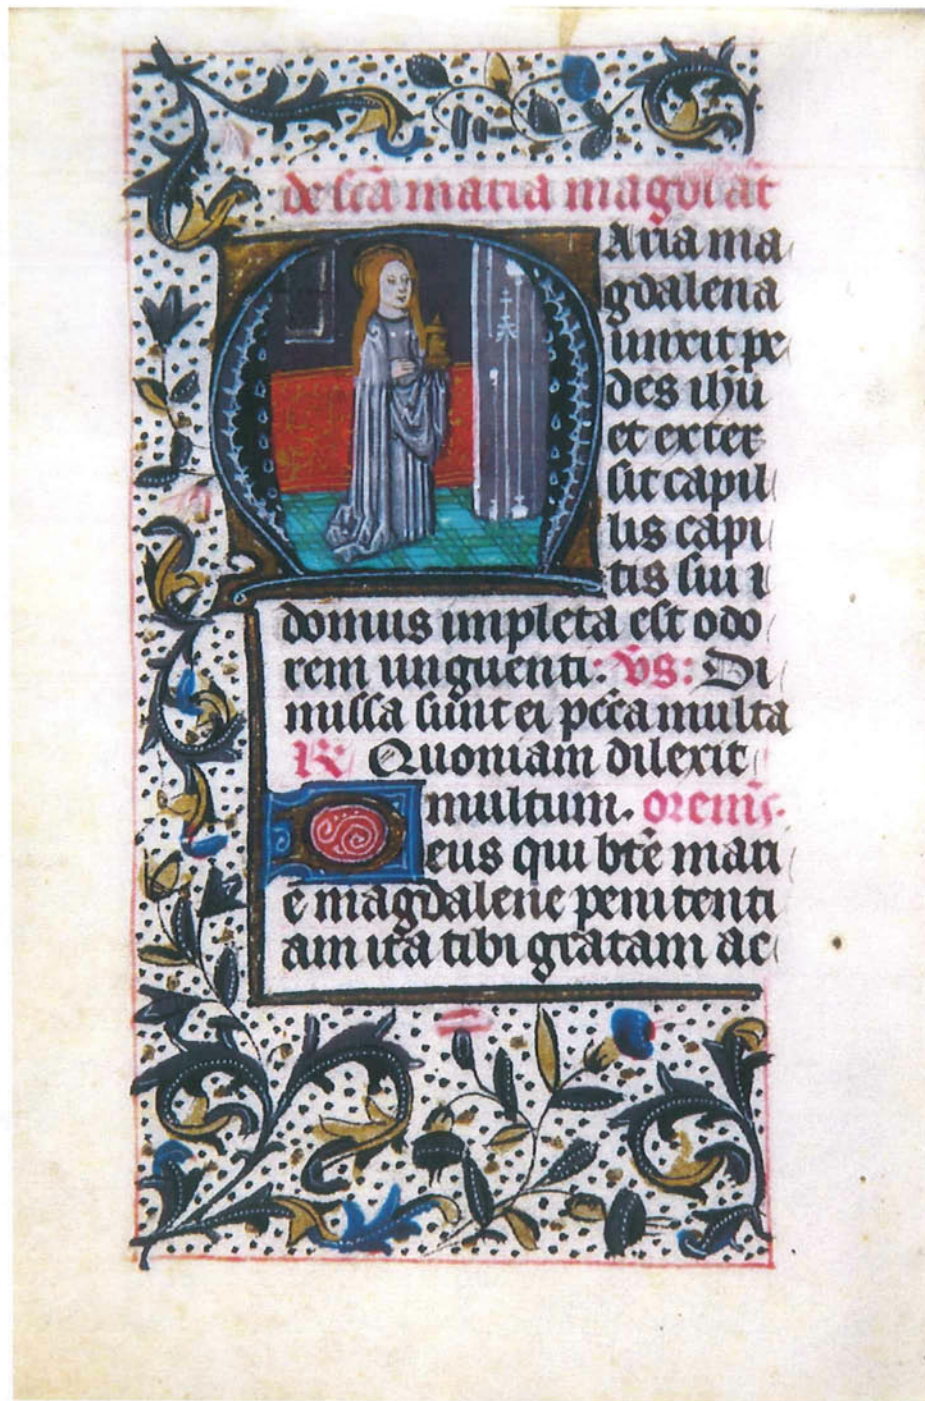 de scā maria magdalē
Aria ma
gdalena
unxit pe
des ihū
et exter
sit capil
lis capi
tis sui ⁊
domus impleta est odo
rem unguenti: v̄s: Di
missa sunt ei pccā multa
R Quoniam dilexit
multum. oremꝰ.
eus qui btē mari
e magdalene penitenti
am ita tibi gratam ac